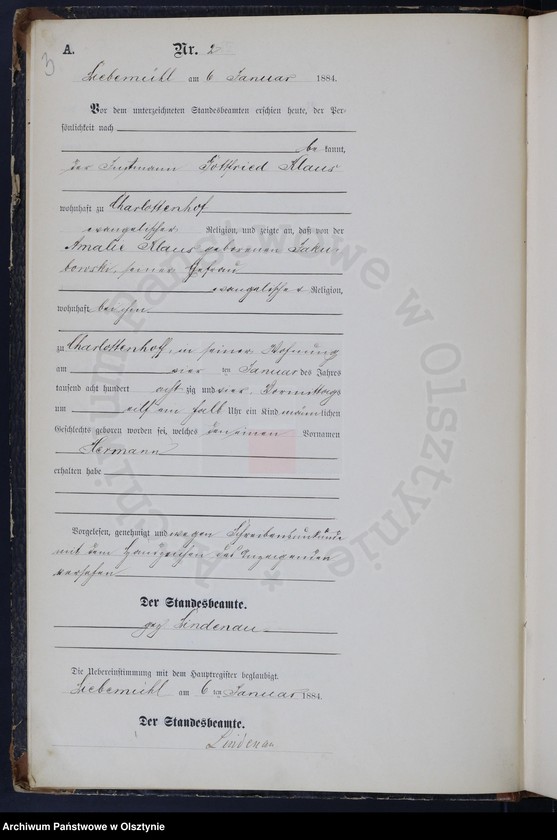 3
A. Nr. 2
Liebemühl am 6 Januar 1884.
Vor dem unterzeichneten Standesbeamten erschien heute, der Per-
sönlichkeit nach
be kannt,
der Instmann Gottfried Klaus
wohnhaft zu Charlottenhof
evangelischer Religion, und zeigte an, daß von der
Amalie Klaus geborenen Jaku-
bowski, seiner Ehefrau
evangelischer Religion,
wohnhaft bei ihm
zu Charlottenhoff, in seiner Wohnung
am vier ten Januar des Jahres
tausend acht hundert acht zig und vier Vormittags
um elf ein halb Uhr ein Kind männlichen
Geschlechts geboren worden sei, welches den einen Vornamen
Hermann
erhalten habe
Vorgelesen, genehmigt und wegen Schreibensunkunde
mit dem Handzeichen des Anzeigenden
versehen
Der Standesbeamte.
gez. Lindenau
Die Uebereinstimmung mit dem Hauptregister beglaubigt.
Liebemühl am 6 ten Januar 1884.
Der Standesbeamte.
Lindenau
Archiwum Państwowe w Olsztynie
* Archiwum Państwowe w Olsztynie